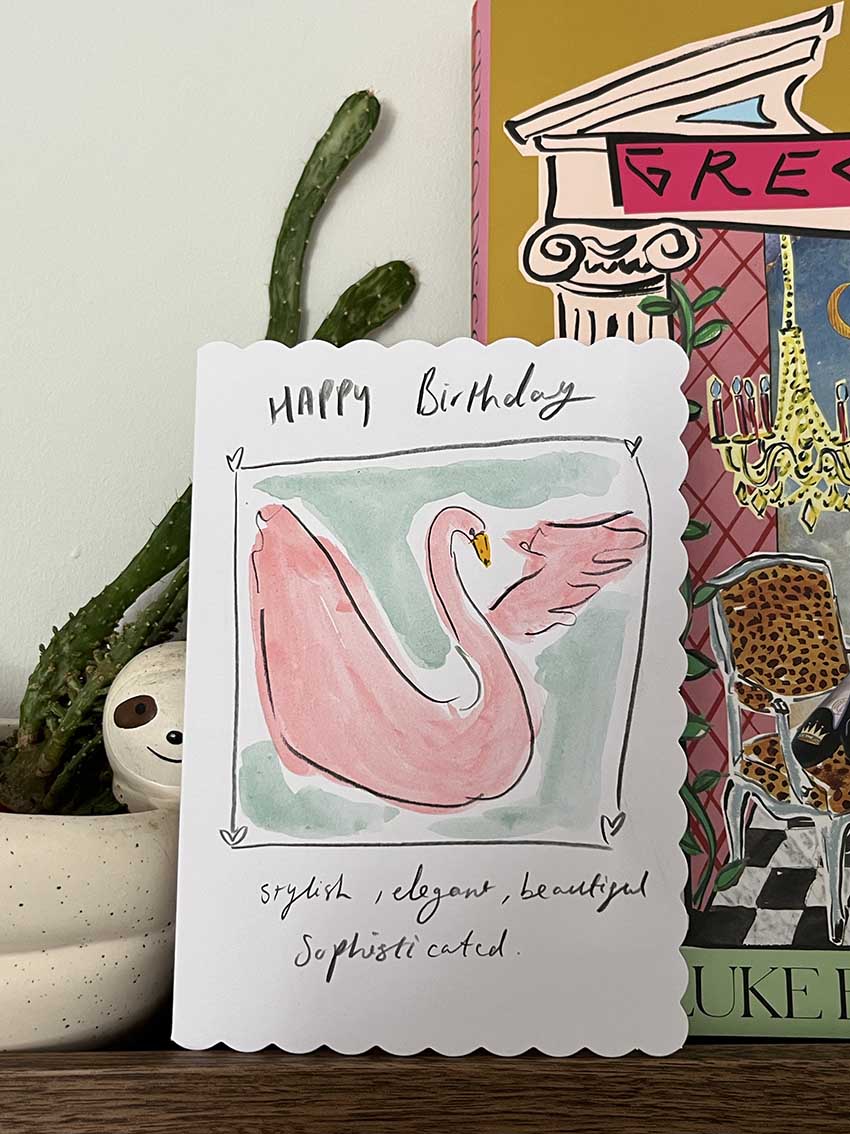 HAPPY Birthday
stylish, elegant, beautiful
Sophisticated.
GRE
LUKE E